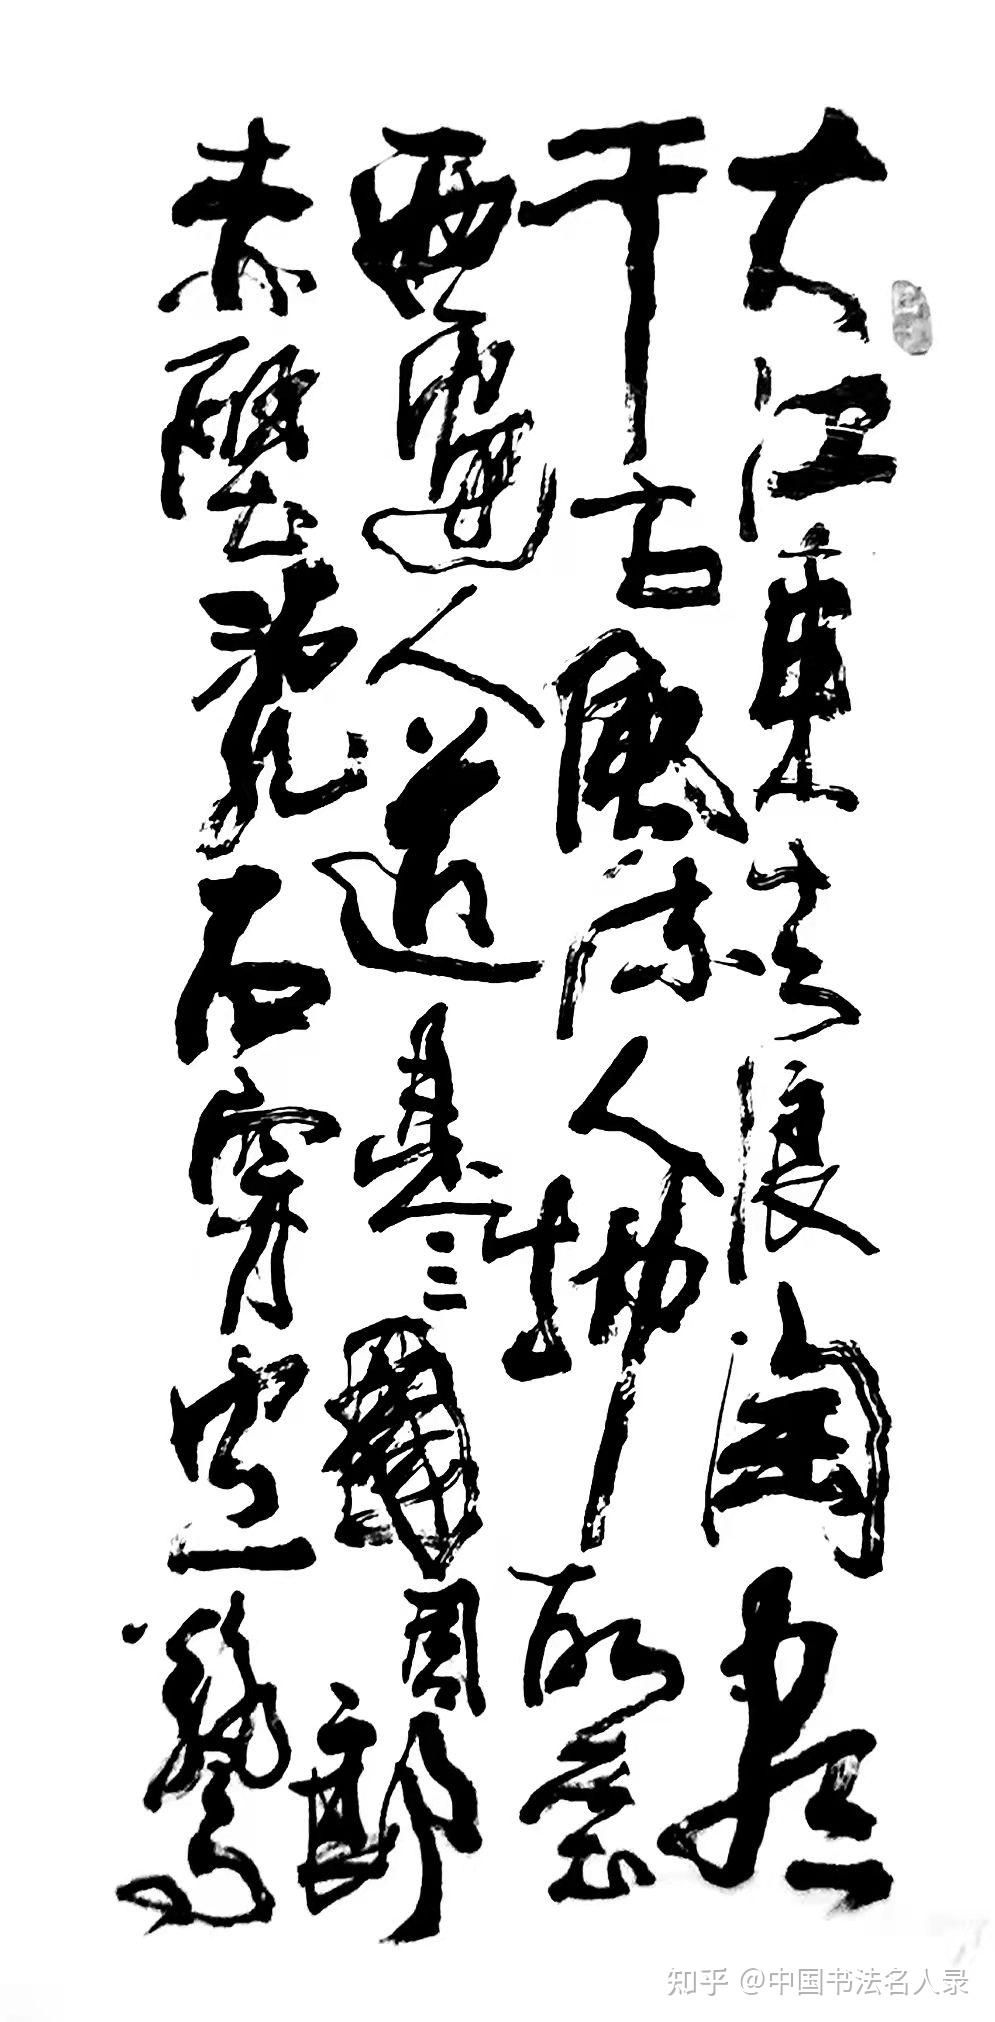 大江東去浪淘盡
千古風流人物故壘
西邊人道是三國周郎
赤壁亂石穿空驚
知乎 @中国书法名人录